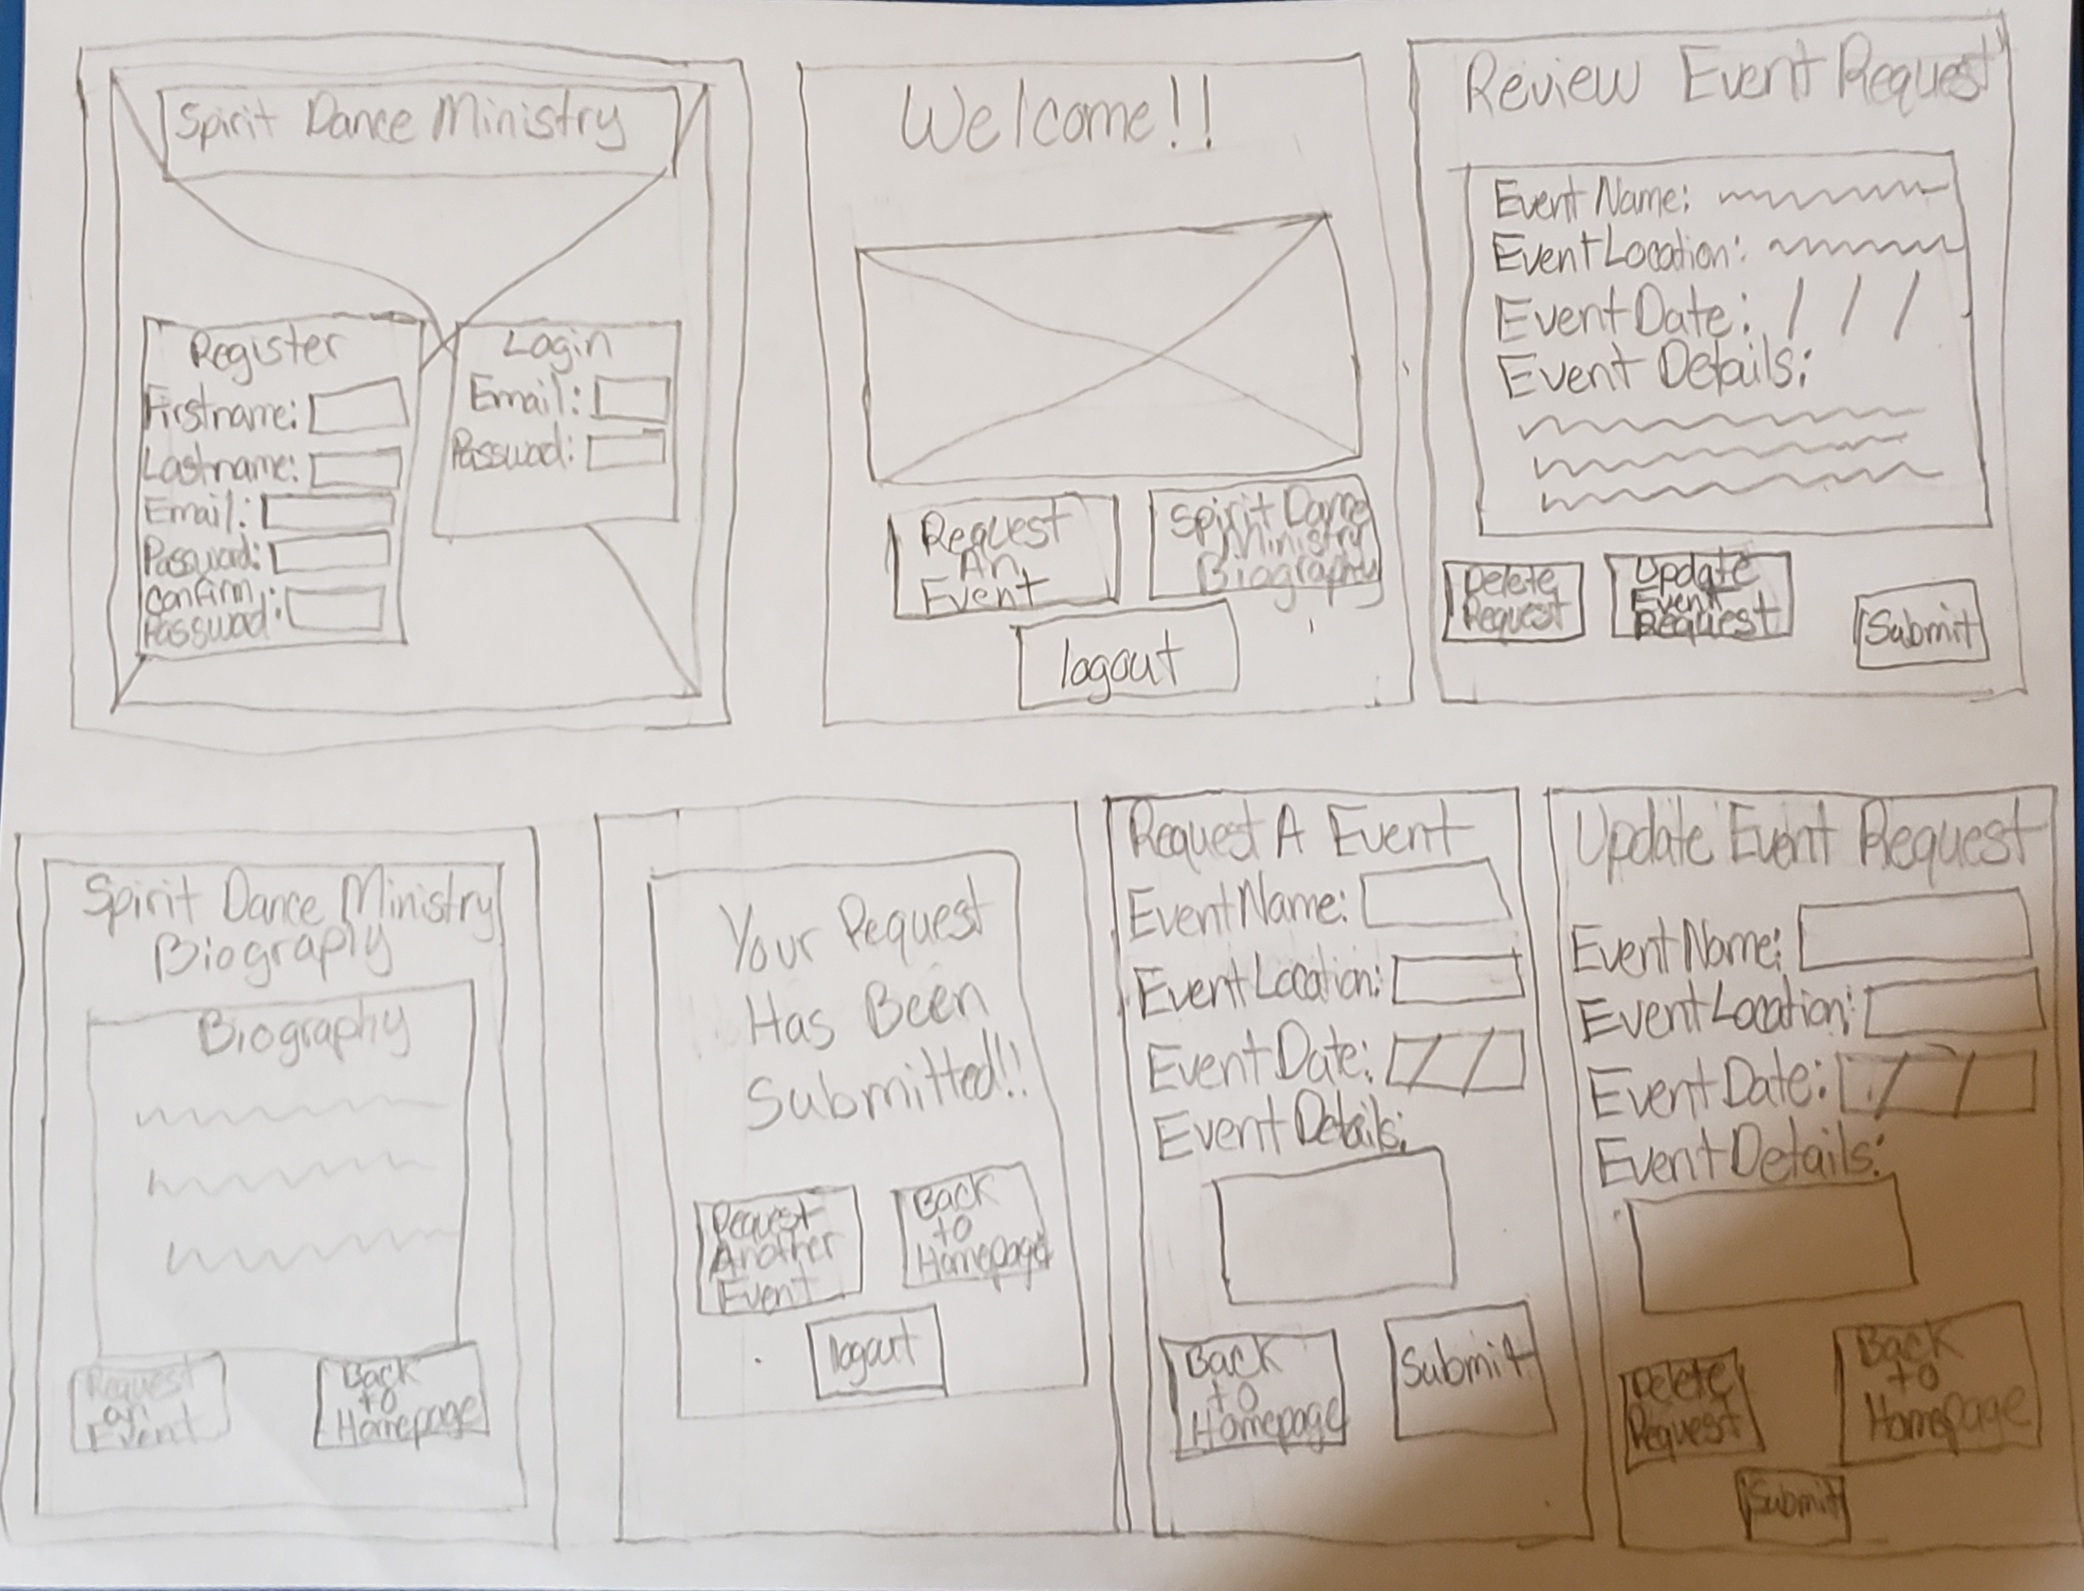 Spirit Dance Ministry
Register
Firstname:
Lastname:
Email:
Passwod:
Confirm
Passwod:
Login
Email:
Passwod:
Welcome!!
Request
An
Event
Spirit Dance
Ministry
Biography
logout
Review Event Request
Event Name:
Event Location:
Event Date: / / /
Event Details:
Delete
Request
Update
Event
Request
Submit
Spirit Dance Ministry
Biography
Biography
Request
an
Event
Back
to
Homepage
Your Request
Has Been
Submitted!!
Request
Another
Event
Back
to
Homepage
logout
Request A Event
Event Name:
Event Location:
Event Date: / /
Event Details:
Back
to
Homepage
Submit
Update Event Request
Event Name:
Event Location:
Event Date: / /
Event Details:
Delete
Request
Back
to
Homepage
Submit